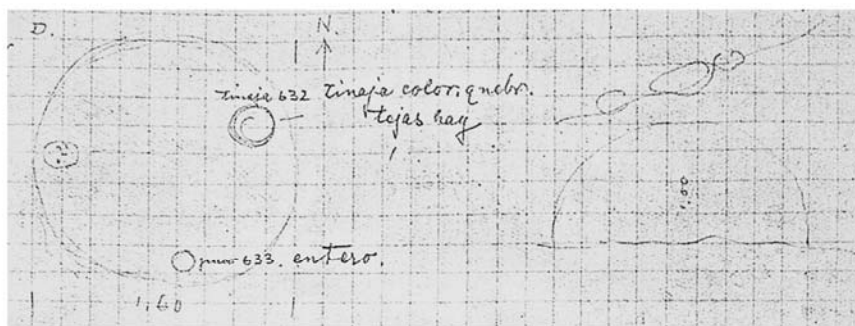 D.
N.
tinaja 632 tinaja color. quebr.
tejas hay
633. entero.
1.60
1.60